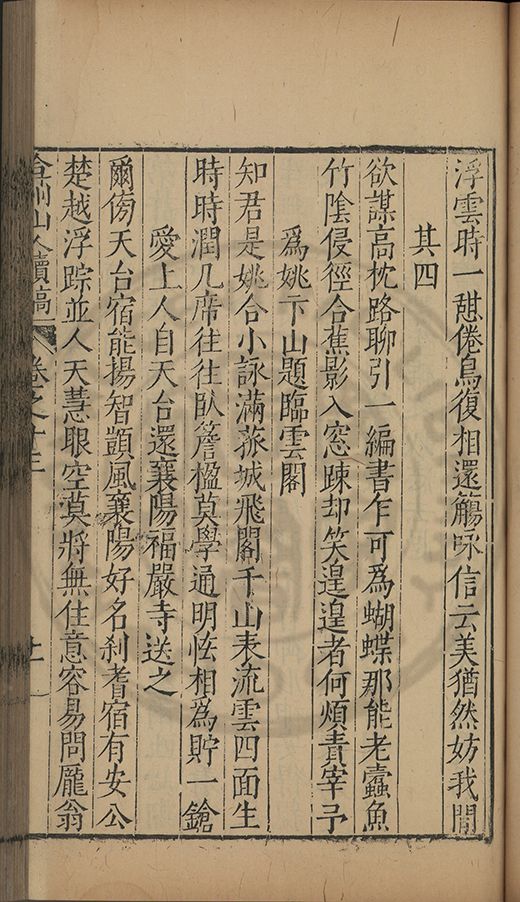 浮雲時一憇倦鳥復相還觴咏信云美猶然妨我閒
其四
欲謀高枕路聊引一編書乍可為蝴蝶那能老蠹魚
竹陰侵徑合蕉影入窓踈却笑遑遑者何煩責宰予
為姚下山題臨雲閣
知君是姚合小詠滿菰城飛閣千山表流雲四面生
時時潤几席往往臥簷楹莫學通明恡相為貯一鎗
愛上人自天台還襄陽福嚴寺送之
爾傍天台宿能揚智顗風襄陽好名刹耆宿有安公
楚越浮踪並人天慧眼空莫將無住意容易問龐翁
弇州山人續稿 卷之十三 十一